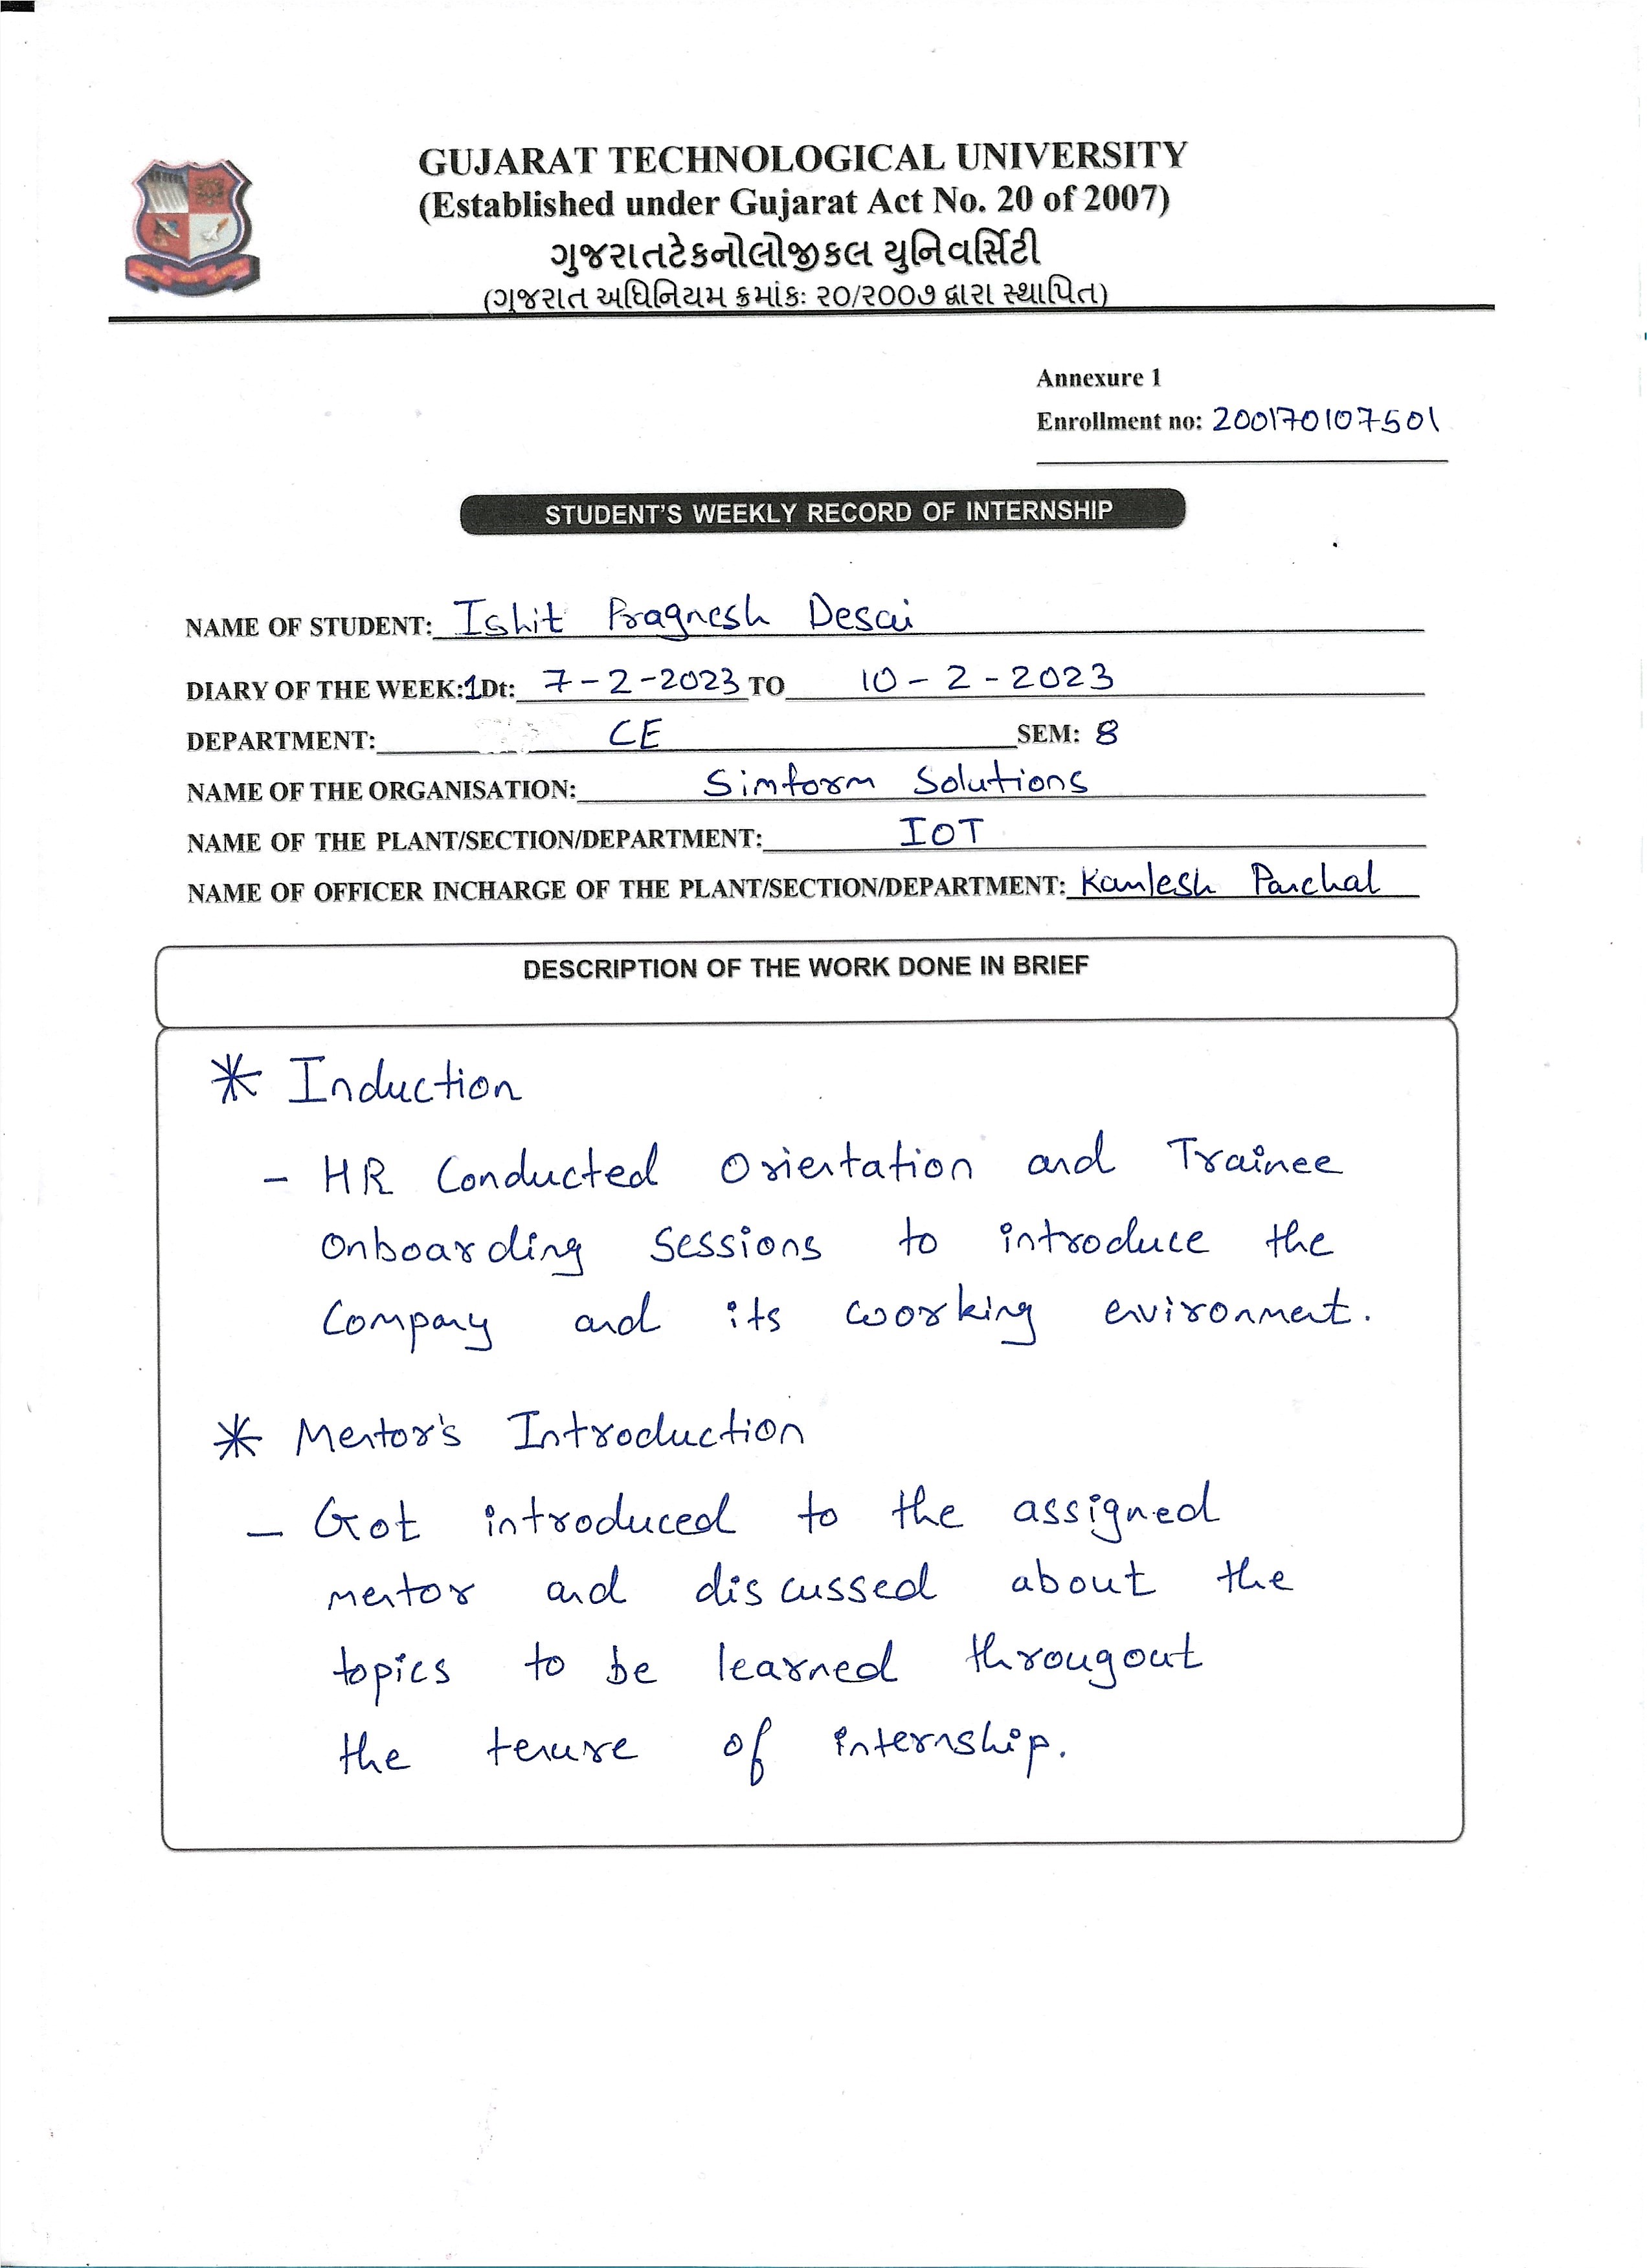 GUJARAT TECHNOLOGICAL UNIVERSITY
(Established under Gujarat Act No. 20 of 2007)
ગુજરાતટેકનોલોજીકલ યુનિવર્સિટી
(ગુજરાત અધિનિયમ ક્રમાંકઃ ૨૦/૨૦૦૭ દ્વારા સ્થાપિત)
Annexure 1
Enrollment no: 200170107501
STUDENT'S WEEKLY RECORD OF INTERNSHIP
NAME OF STUDENT: Ishit Pragnesh Desai
DIARY OF THE WEEK:1Dt: 7-2-2023 TO 10-2-2023
DEPARTMENT: CE SEM: 8
NAME OF THE ORGANISATION: Simform Solutions
NAME OF THE PLANT/SECTION/DEPARTMENT: IOT
NAME OF OFFICER INCHARGE OF THE PLANT/SECTION/DEPARTMENT: Kamlesh Panchal
DESCRIPTION OF THE WORK DONE IN BRIEF
* Induction
- HR Conducted Orientation and Trainee
Onboarding Sessions to introduce the
Company and its working environment.
* Mentor's Introduction
- Got introduced to the assigned
mentor and discussed about the
topics to be learned througout
the tenure of internship.